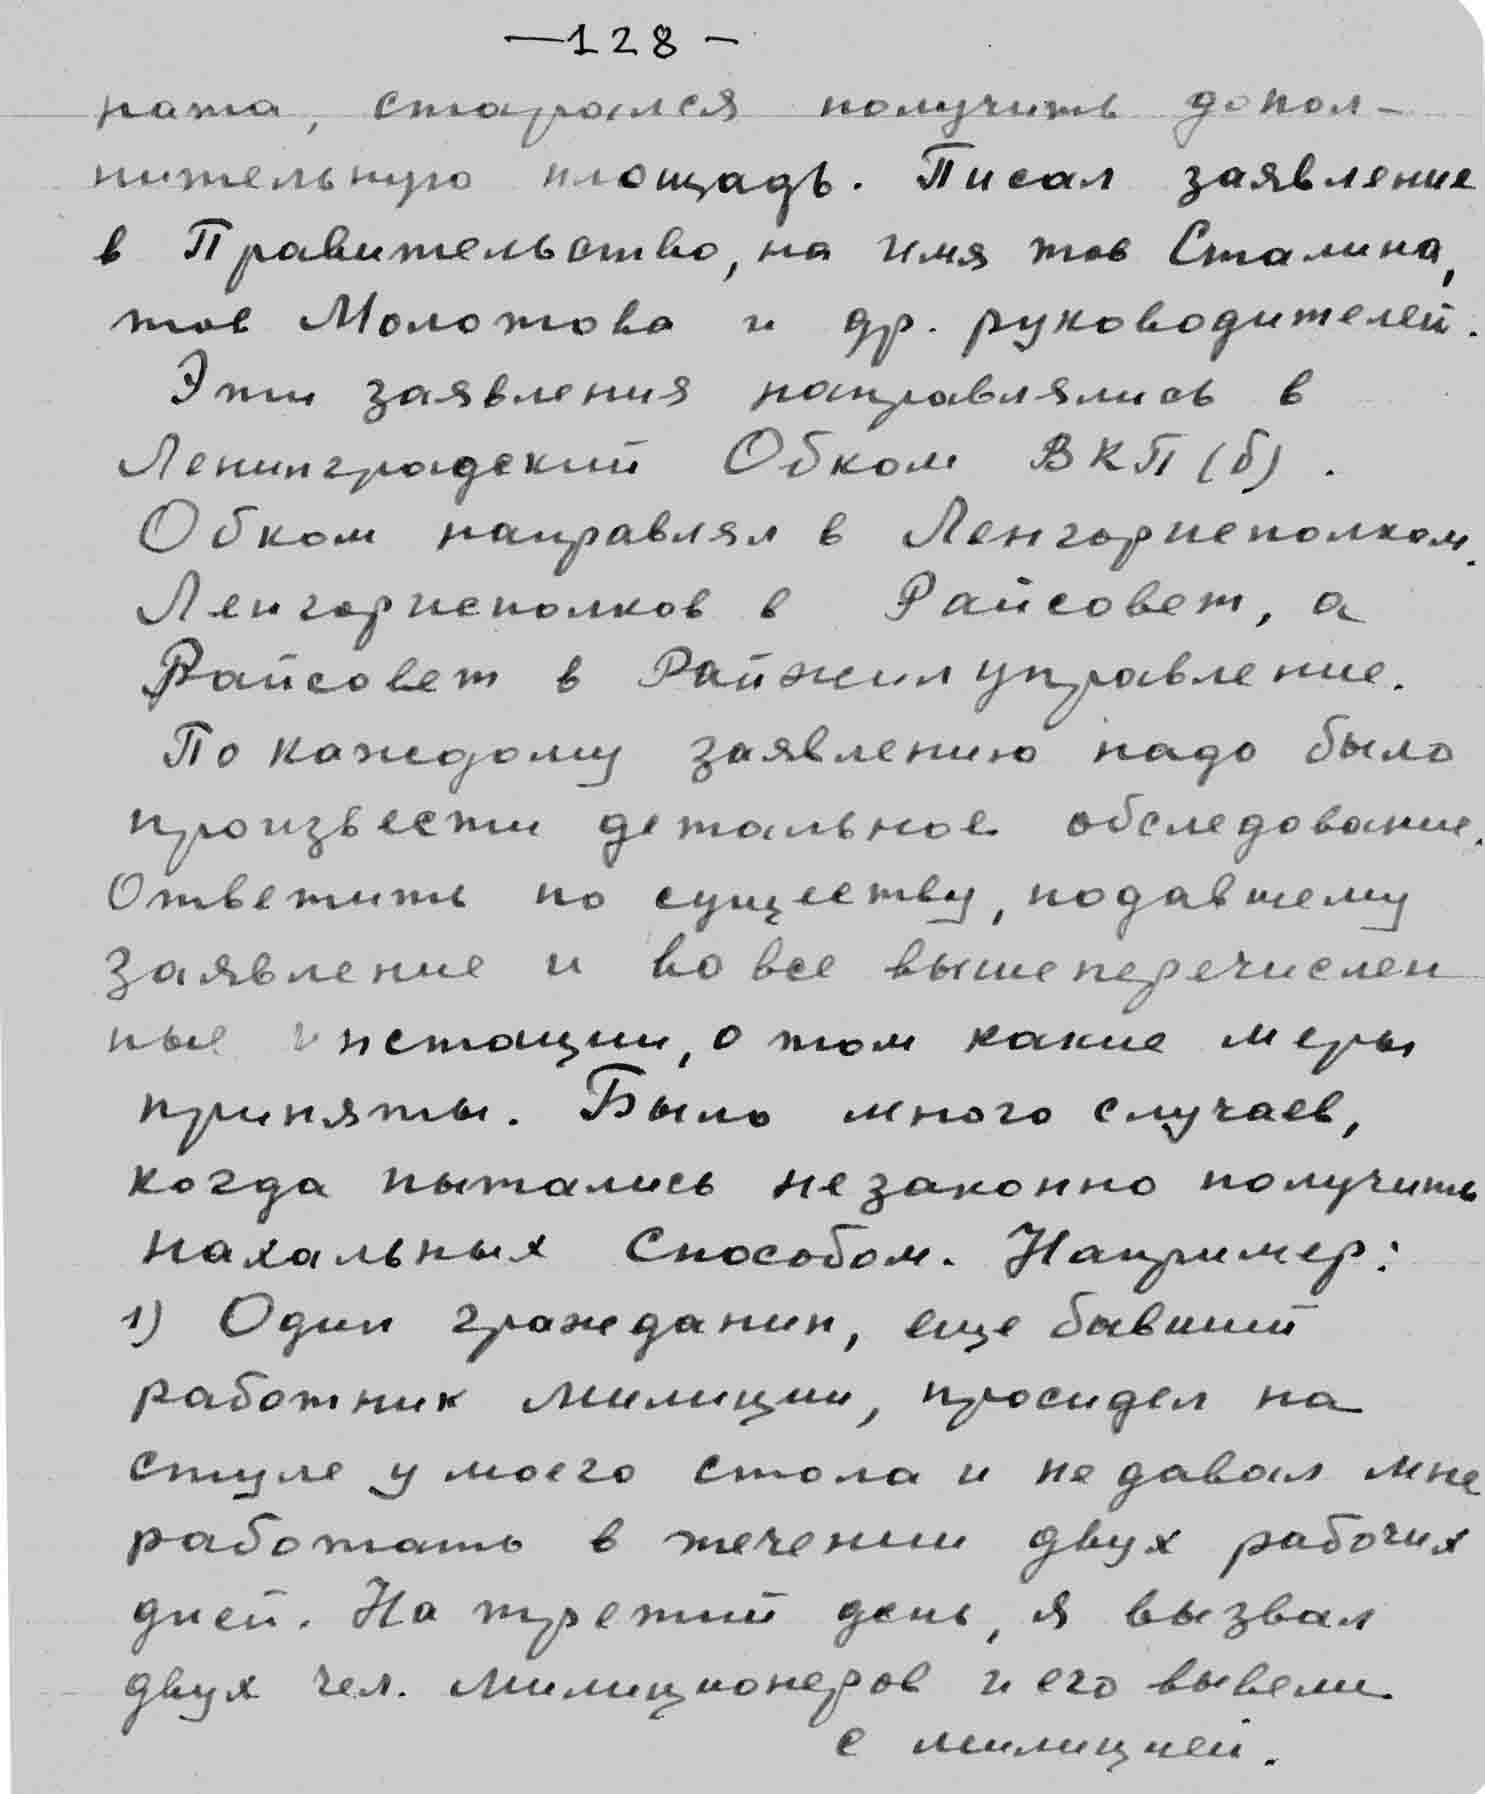 —128—
ната, старался получить допол-
нительную площадь. Писал заявление
в Правительство, на имя тов Сталина,
тов Молотова и др. руководителей.
Эти заявления направлялись в
Ленинградский Обком ВКП(б).
Обком направлял в Ленгорисполком.
Ленгорисполков в Райсовет, а
Райсовет в Райжилуправление.
По каждому заявлению надо было
произвести детальное обследование.
Ответить по существу, подавшему
заявление и во все вышеперечислен
ные инстации, о том какие меры
приняты. Было много случаев,
когда пытались незаконно получить
нахальных способом. Например:
1) Один гражданин, еще бывший
работник милиции, просидел на
стуле у моего стола и не давал мне
работать в течении двух рабочих
дней. На третий день, я вызвал
двух чел. милиционеров и его вывели
с милицией.